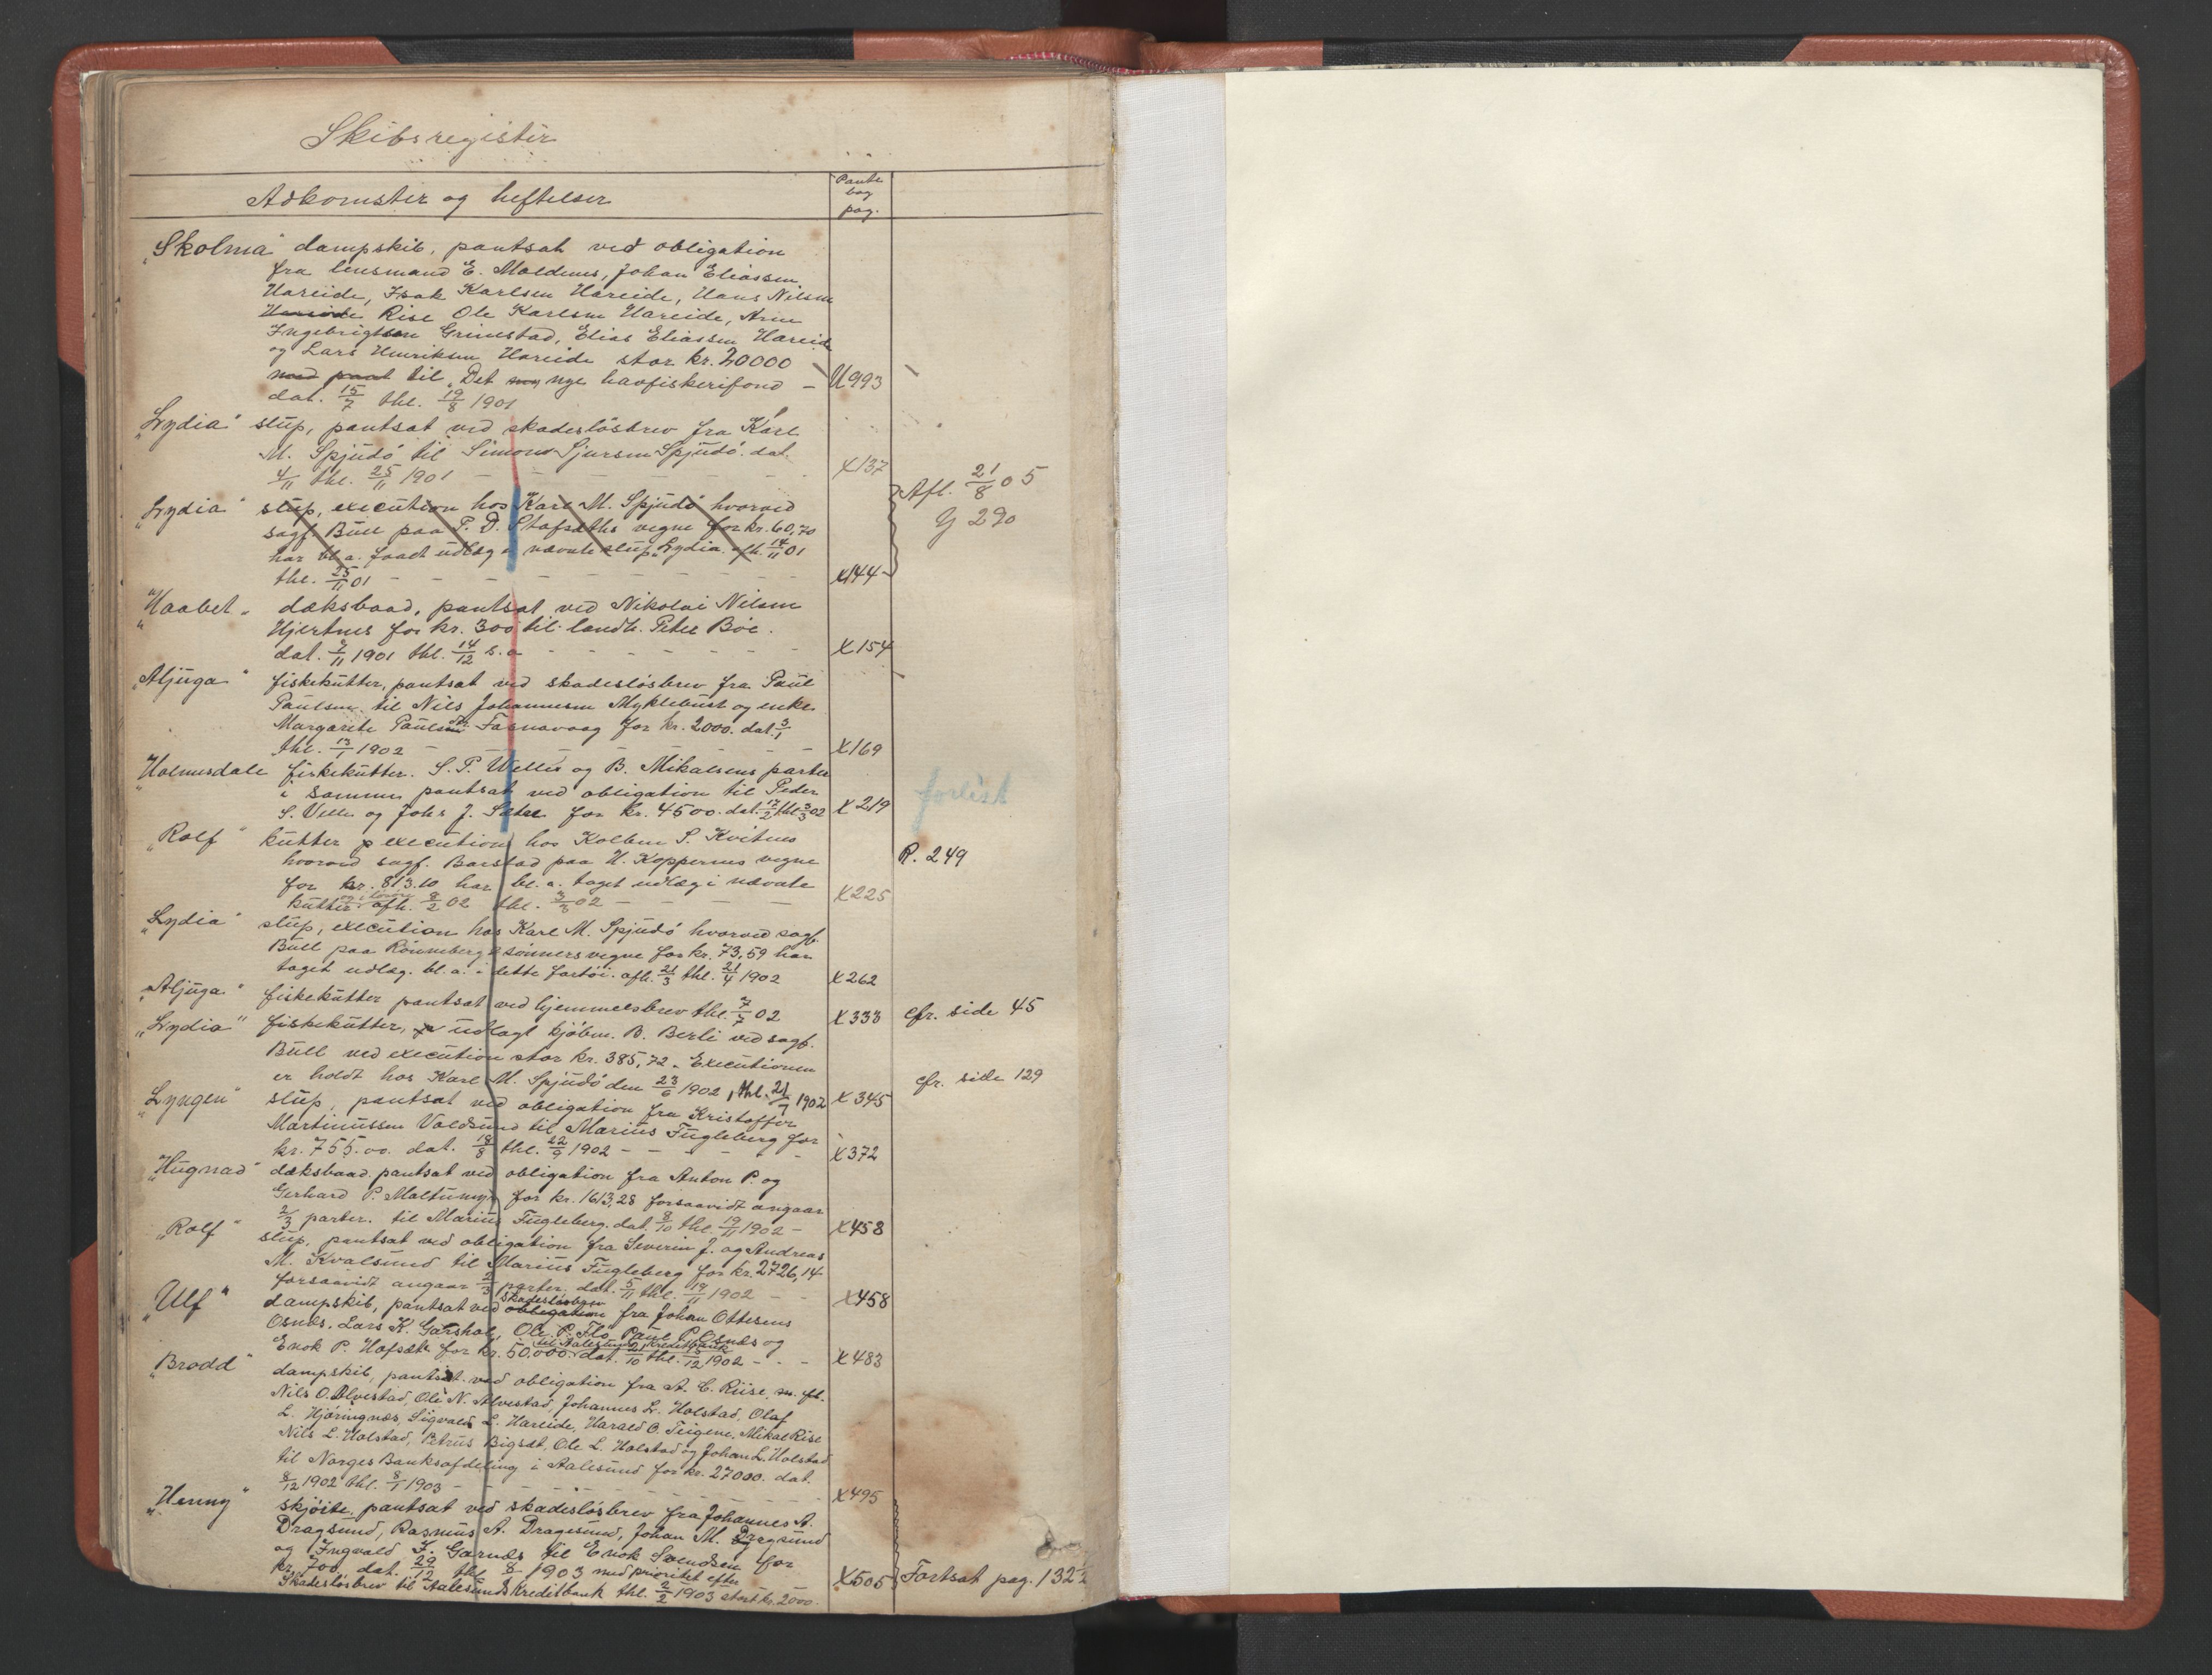 Skibsregister
Adkomster og heftelser
Pante
bog
pag.
"Skolma" dampskib, pantsat ved obligation
fra lensmand E. Moldenes, Johan Eliassen
Hareide, Isak Karlsen Hareide, Hans Nilsen
Hareide Rise Ole Karlsen Hareide, Arne
Ingebrigtsen Grimstad, Elias Eliassen Hareide
og Lars Henriksen Hareide stor kr. 20000
med pant til "Det ny nye havfiskerifond - U993
dat. 15/7 thl. 19/8 1901
"Lydia" slup, pantsat ved skadesløsbrev fra Karl
M. Spjudø til Simon Sjursen Spjudø. dat.
4/11 thl. 25/11 1901 - X137
"Lydia" slup, execution hos Karl M. Spjudø hvorved
Afl. 21/8 05
sagf. Bull paa P. D. Stafsæths vegne for kr. 60,70
Y 290
har bl.a. faaet udlæg i nævnte slup "Lydia. afh. 14/11 01
thl. 25/11 01 - X144
"Haabet" dæksbaad, pantsat ved Nikolai Nilsen
Hjertnes for kr. 300 til landh. Peter Bøe.
dat. 7/11 1901 thl. 14/12 s.a - X154
"Aljuga" fiskekutter, pantsat ved skadesløsbrev fra Paul
Paulsen til Nils Johannesen Myklebust og enke
Margarete Paulsen Fosnavaag for kr. 2000. dat. 3/1
thl. 13/1 1902 - X169
"Holmesdale fiskekutter. S. P. Velles og B. Mikalsens parter
i samme pantsat ved obligation til Peder
forlist
S. Velle og Johs J. Sætre for kr. 4500. dat. 17/2 thl 3/3 02 X219
"Rolf" kutter execution hos Kolben S. Kvitnes
hvorved sagf. Barstad paa H. Koppernes vegne
R. 249
for kr. 813.10 har bl. a. taget udlæg i nævnte
kutter afh. 8/2 02 thl. 3/3 02 - X225
"Lydia" slup, execution hos Karl M. Spjudø hvorved sagf.
Bull paa Rønneberg & sønners vegne for kr. 73,59 har
taget udlæg. bl. a. i dette fartøi. afh. 21/3 thl. 21/4 1902 X262
"Aljuga" fiskekutter pantsat ved hjemmelsbrev thl. 7/7 02 X333 cfr. side 45
"Lydia" fiskekutter, udlagt kjøbm. B. Berli ved sagf.
Bull ved execution stor kr. 385,72. Executionen
er holdt hos Karl M. Spjudø den 23/6 1902, thl. 21/7 1902 X345 cfr. side 129
"Lyngen" slup, pantsat ved obligation fra Kristoffer
Martinussen Voldsund til Marius Fugleberg for
kr. 755.00. dat. 18/8 thl. 22/9 1902 - X372
"Hugnad" dæksbaad pantsat ved obligation fra Anton P. og
Gerhard P. Moltumyr for kr. 1613,28 forsaavidt angaar
2/3 parter. til Marius Fugleberg. dat. 8/10 thl. 19/11 1902 - X458
"Rolf" slup, pantsat ved obligation fra Severin J. og Andreas
M. Kvalsund til Marius Fugleberg for kr. 2726,14
forsaavidt angaar 2/3 parter. dat. 5/11 thl. 19/11 1902 - X458
"Ulf" dampskib, pantsat ved obligation skadesløsbrev fra Johan Ottesens
Osnæs, Lars K. Garshol, Ole P. Flø, Paul P. Osnæs og
Enok P. Hafsæth for kr. 50.000. til Aalesunds Kreditbank dat. 21/10 thl. /12 1902 - X483
"Brodd" dampskib, pantsat ved obligation fra A. C. Riise, m. fl.
Nils O. Alvestad, Ole N. Alvestad, Johannes L. Holstad, Olaf
L. Hjøringnæs, Sigvald L. Hareide, Harald O. Teigene, Mikal Rise
Nils L. Holstad, Petrus Bigsæt, Ole L. Holstad og Johan L. Holstad
til Norges Banksafdeling i Aalesund for kr. 27000. dat.
8/12 1902 thl. 8/1 1903 - X495
"Henny" skjøite, pantsat ved skadesløsbrev fra Johannes A.
Dragsund, Rasmus A. Dragesund, Johan M. Dragsund
og Ingvald K. Garnæs til Enok Svendsen for
kr. 700, dat. 29/12 thl. 8/1 1903 med prioritet efter X505 Fortsat pag. 132
Skadesløsbrev til Aalesunds Kreditbank thl. 2/2 1903 stort kr. 2000.